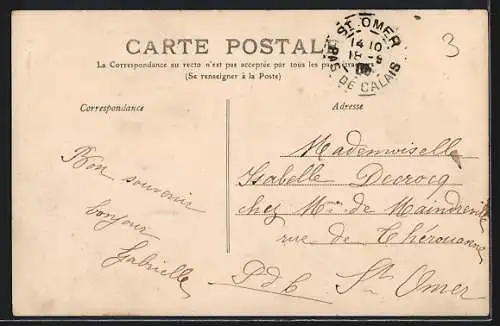 CARTE POSTALE
La Correspondance au recto n'est pas acceptée par tous les pays étrangers
(Se renseigner à la Poste)
ST OMER
14 10
18 - 8
PAS DE CALAIS
3
Correspondance
Adresse
Bon souvenir
bonjour
Gabrielle
Mademoiselle
Isabelle Decrocq
chez Mme de Maindreville
rue de Thérouanne
PdC St Omer